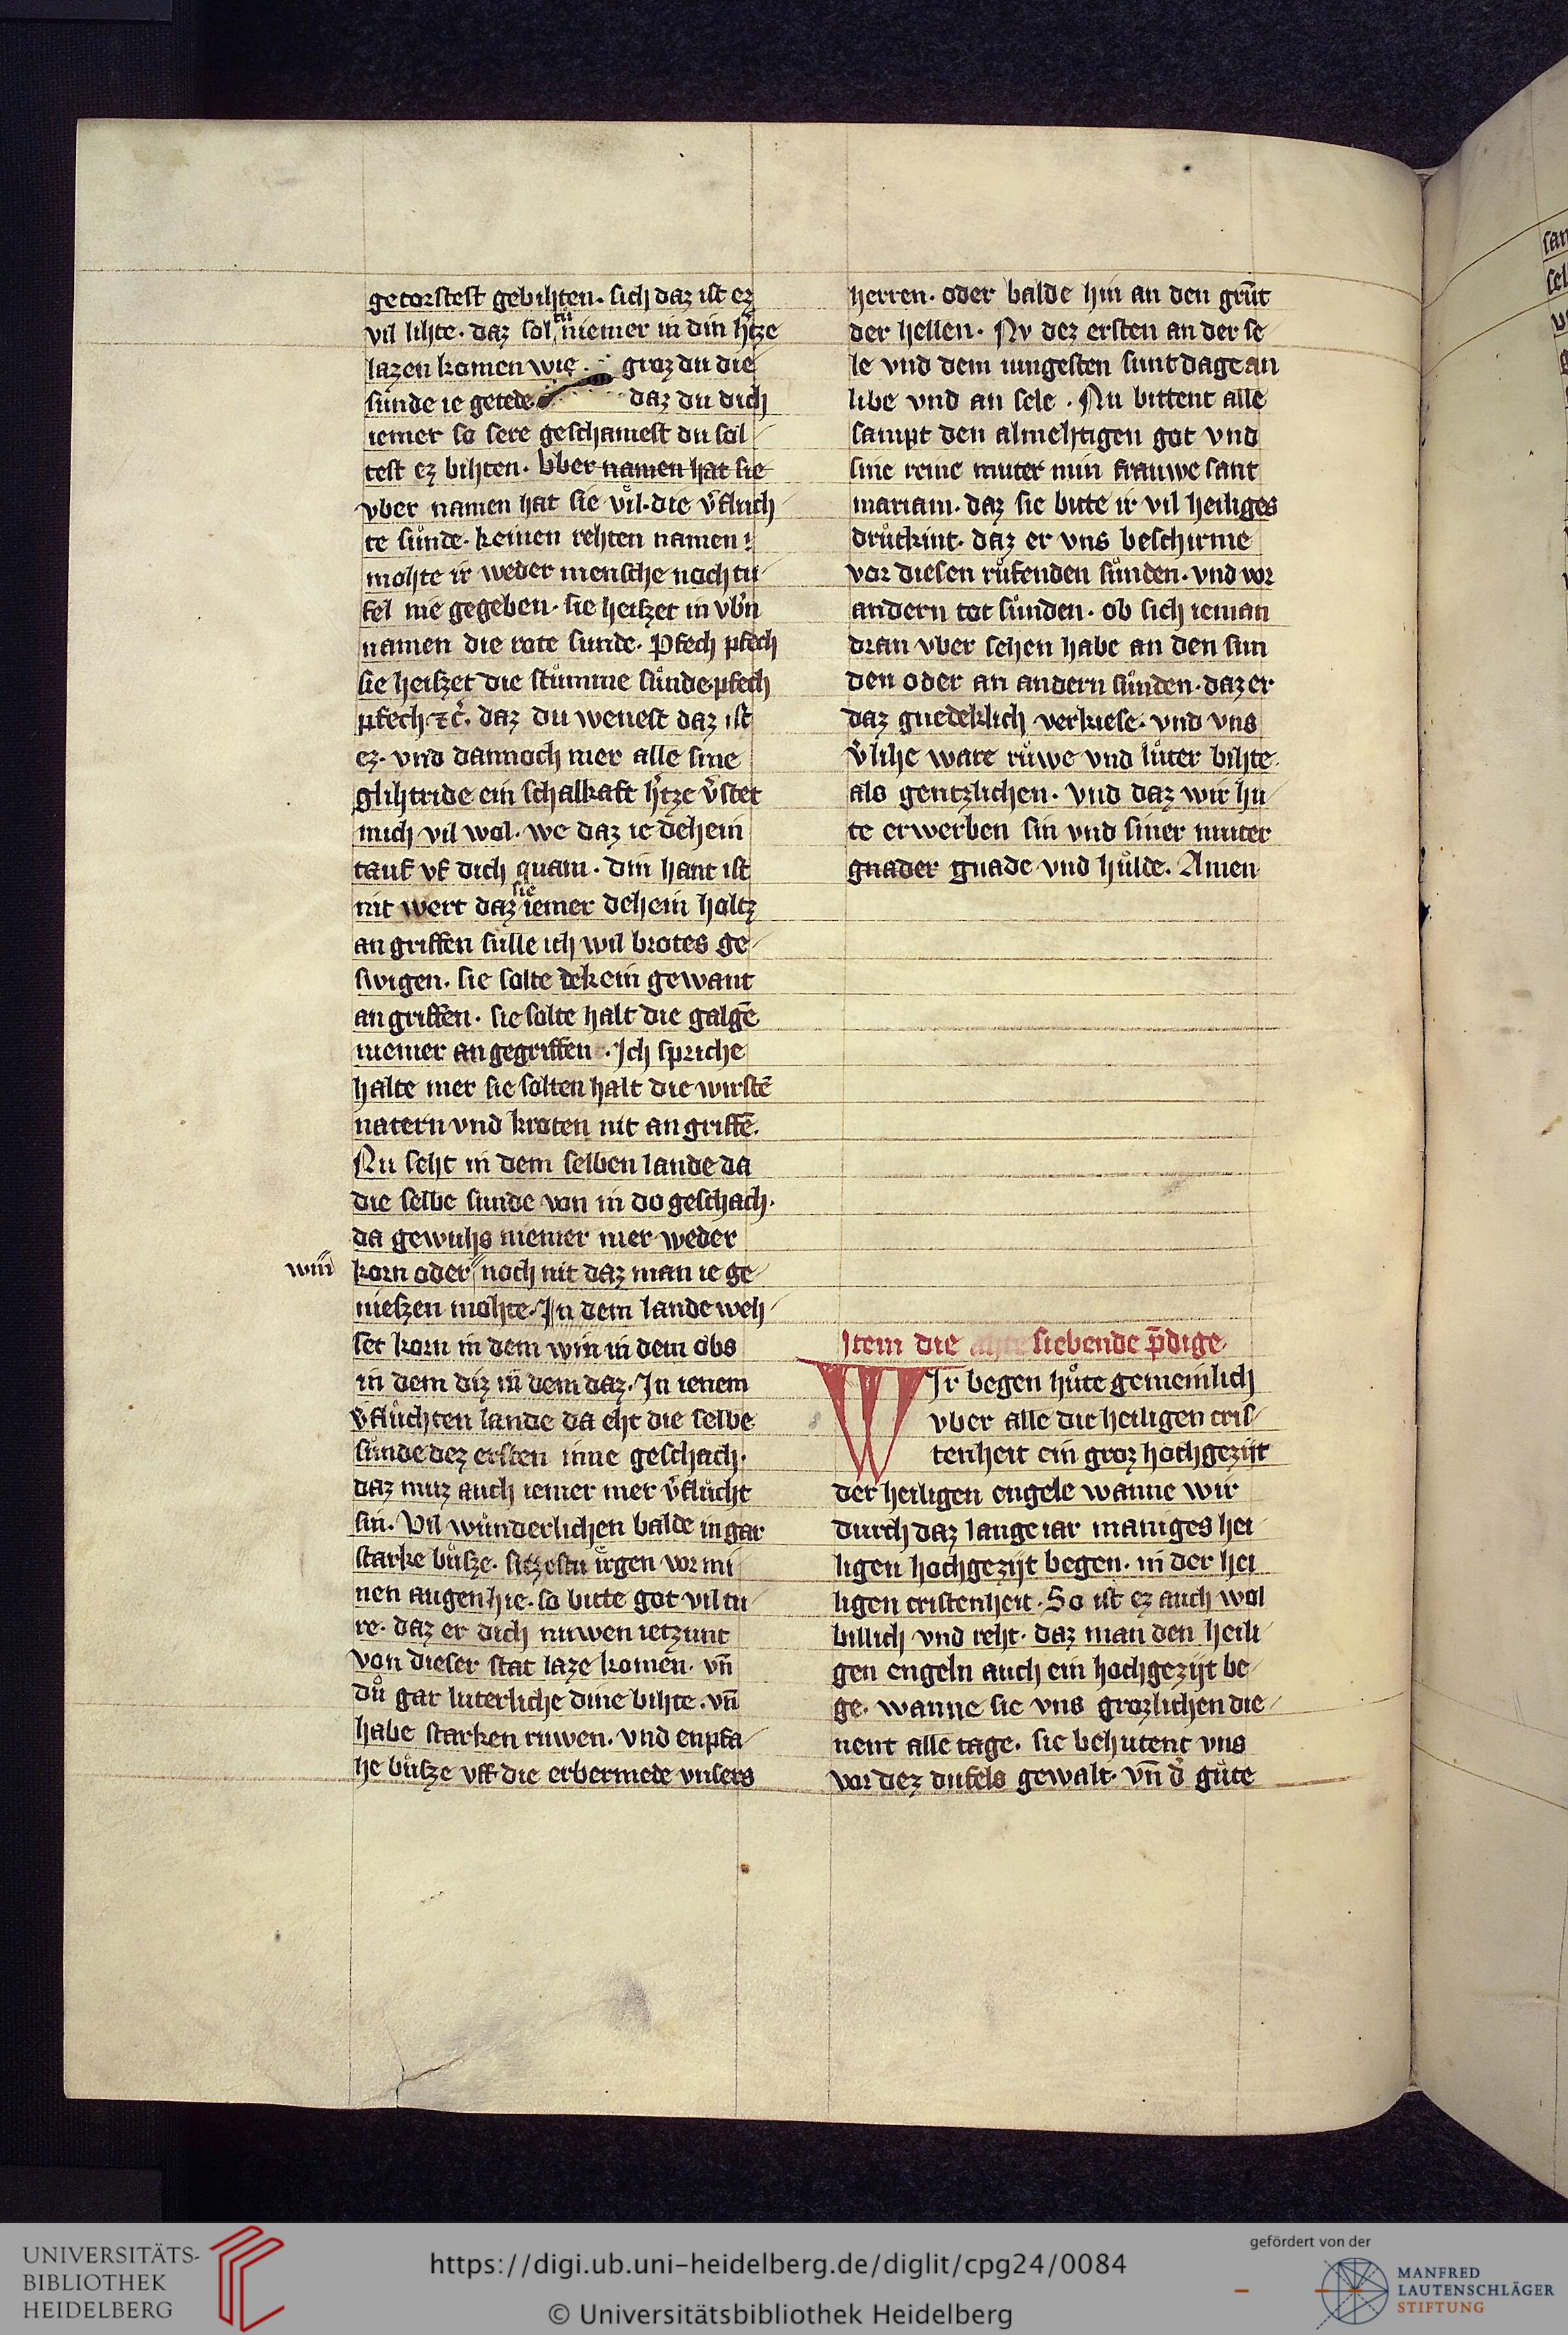 getorstest gebihten. sich daz ist ez
vil lihte. daz solˌtuˌ niemer in din h̾tze
lazen komen wie groz du die
sunde ie getede daz du dich
iemer so sere geschamest du sol
test ez bihten. Vber namen hat sie
vber namen hat sie vil. die v̾fluch
te suͤnde. keinen rehten namen
mohte ir weder mensche noch tu
fel nie gegeben. sie heiszet in vb̾n
namen die rote sunde. Pfech pfech
sie heiszet die stumme suͤnde. pfech
pfech ⁊c̾. daz du wenest daz ist
ez. vnd dannoch mer alle sine
glihtride ein schalkaft h̾tze v̾stet
mich vil wol. we daz ie dehein
tauf vf dich quam. din hant ist
nit wert daz ˌsieˌ iemer dehein holtz
an griffen sulle ich wil brotes ge
swigen. sie solte dekein gewant
an griffen. sie solte halt die galgē
niemer an gegriffen. Ich spriche
halte mer sie solten halt die wirstē
natern vnd kroten nit an griffē.
Nu seht in dem selben lande da
die selbe sunde von in do geschach.
da gewuhs niemer mer weder
win
korn oder noch nit daz man ie ge
nieszen mohte. In dem lande weh
set korn in dem win in dem obs
in dem diz in dem daz. In ienem
v̾fluͦchten lande da eht die selbe
suͤnde dez ersten inne geschach.
daz muz auch iemer mer v̾fluͦcht
sin. Vil wuͤnderlichen balde in gar
starke buͦsze. sitzestu irgen vor mi
nen augen hie. so bitte got vil tu
re. daz er dich nuwen ietzunt
von dieser stat laze komen. vn̄
duͦ gar luterliche dine bihte. vn̄
habe starken ruwen. vnd enpfa
he buͦsze vff die erbermede vnsers
herren. oder balde hin an den grūt
der hellen. Nv dez ersten an der se
le vnd dem iungesten suntdage an
libe vnd an sele. Nu bittent alle
sampt den almehtigen got vnd
sine reine muter min frauwe sant
mariam. daz sie bitte ir vil heiliges
druͦtkint. daz er vns beschirme
vor diesen ruͦfenden suͤnden. vnd vor
andern tot suͤnden. ob sich ieman
dran vber sehen habe an den sun
den oder an andern suͤnden. daz er
daz gnedeklich verkiese. vnd vns
v̾lihe ware ruͦwe vnd luͦter bihte.
als gentzlichen. vnd daz wir hu
te erwerben sin vnd siner muter
gnader gnade vnd huͦlde. Amen
Item die ahte siebende p̄dige.
WIr begen huͦte gemeinlich
vber alle die heiligen cris
tenheit ein groz hochgezijt
der heiligen engele wanne wir
durch daz lange iar maniges hei
ligen hochgezijt begen. in der hei
ligen cristenheit. So ist ez auch wol
billich vnd reht. daz man den heili
gen engeln auch ein hochgezijt be
ge. wanne sie vns grozlichen die
nent alle tage. sie behutent vns
vor dez dufels gewalt. vn̄ d̾ guͤte
UNIVERSITÄTS-
BIBLIOTHEK
HEIDELBERG
https://digi.ub.uni-heidelberg.de/diglit/cpg24/0084
© Universitätsbibliothek Heidelberg
gefördert von der
MANFRED
LAUTENSCHLÄGER
STIFTUNG